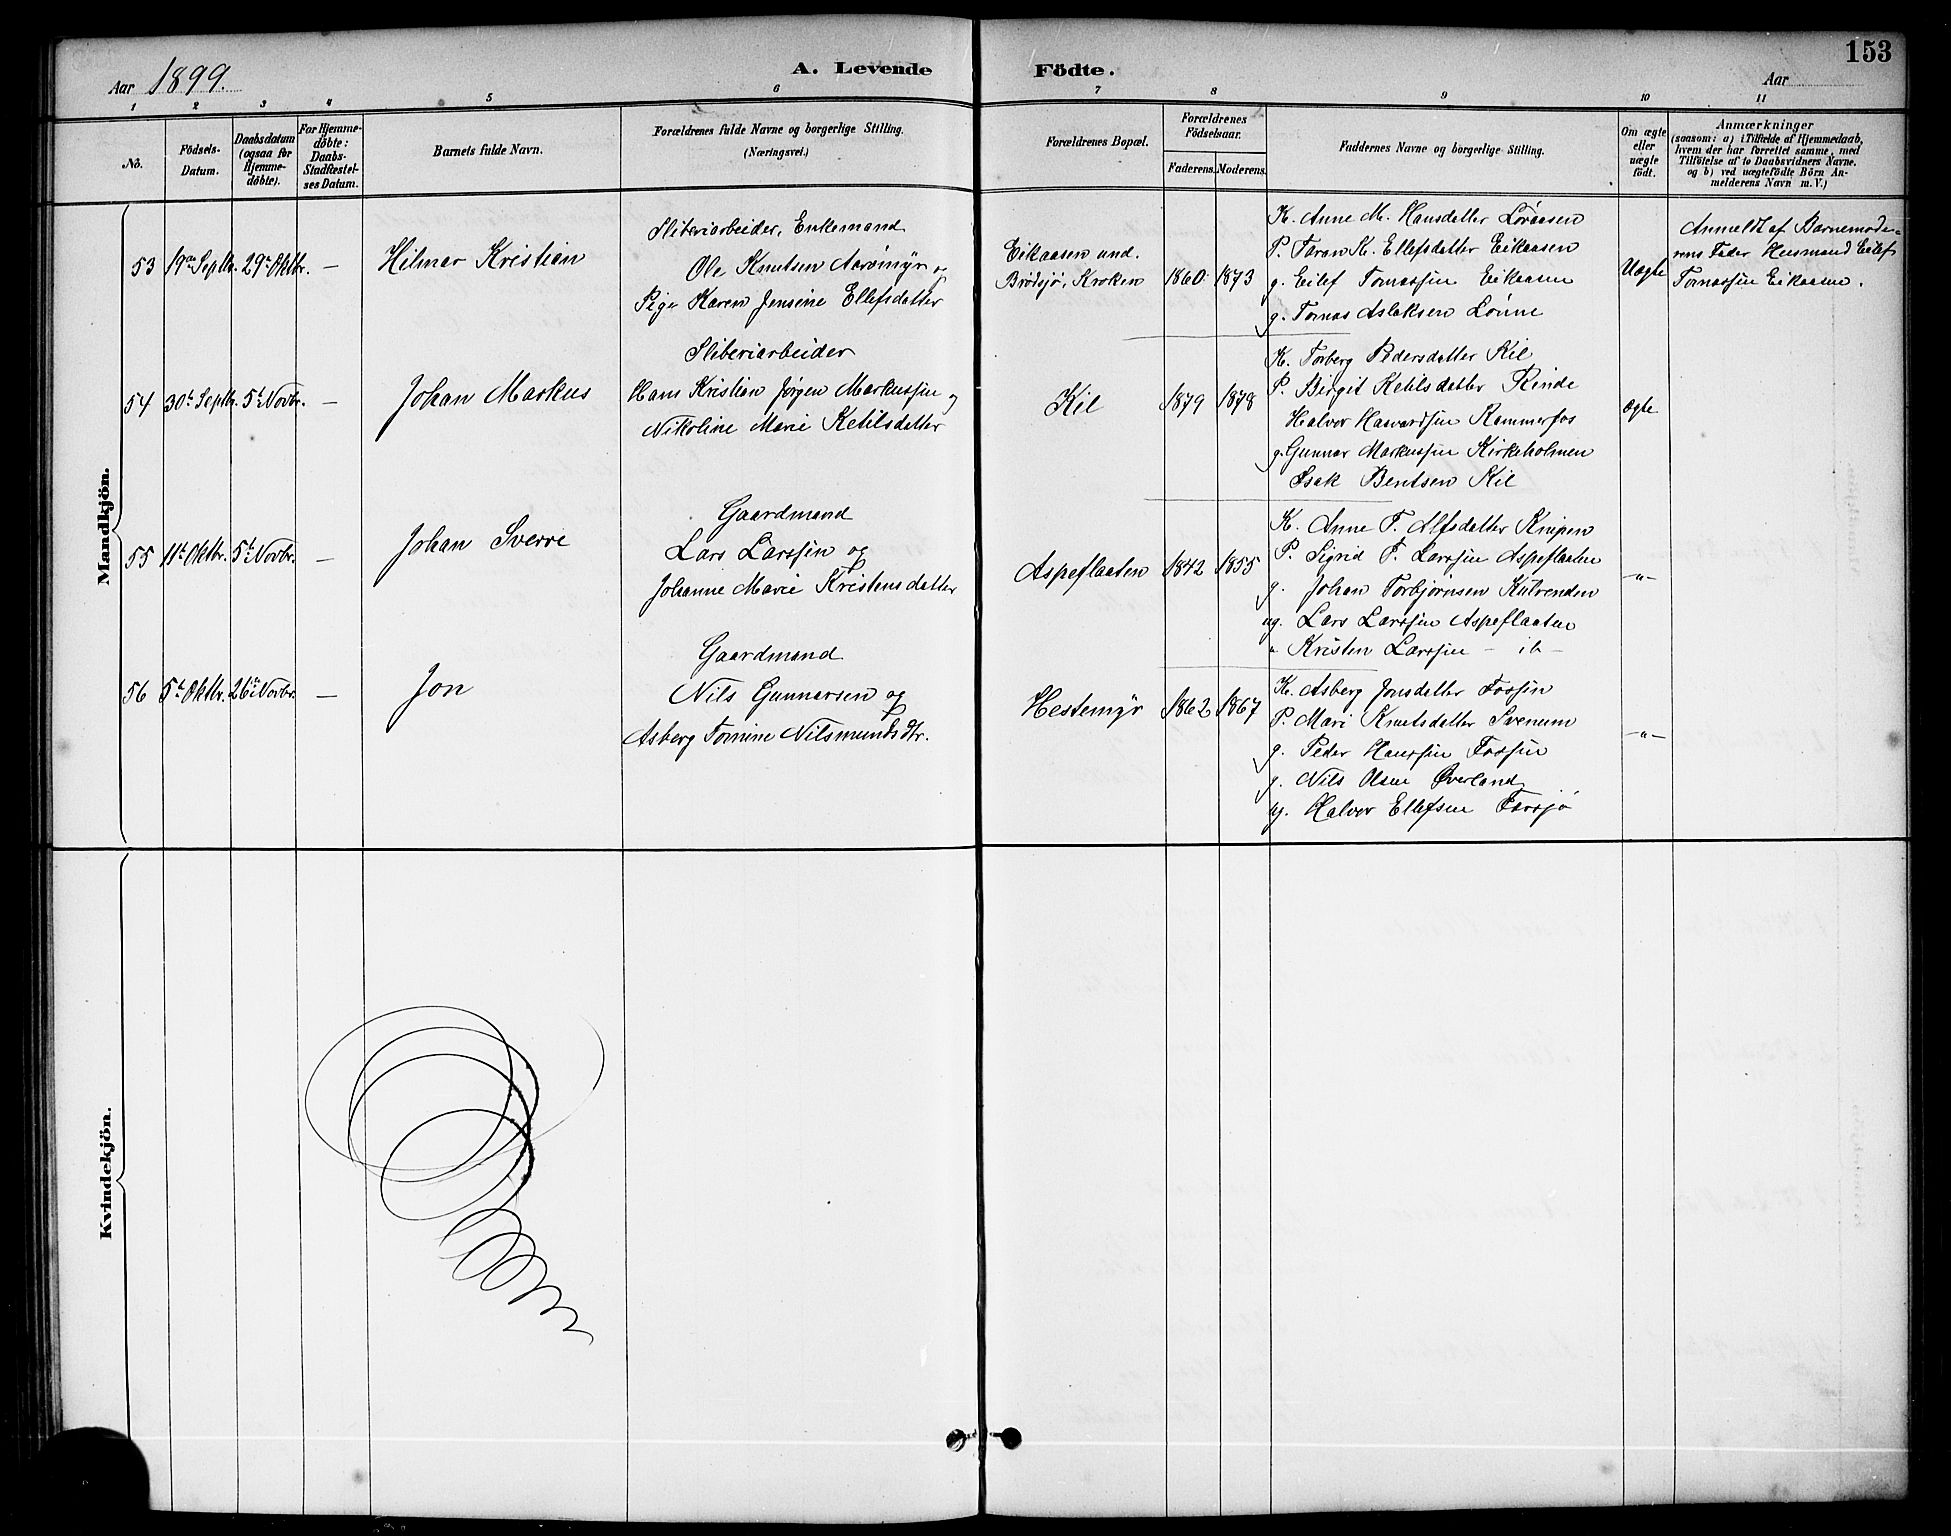 153
Aar 1899.
A. Levende Födte.
Aar
1 2 3 4 5 6 7 8 9 10 11
No.
Födsels-Datum.
Daabsdatum (ogsaa for Hjemme-döbte).
For Hjemme-döbte: Daabs-Stadfæstel-ses Datum.
Barnets fulde Navn.
Forældrenes fulde Navne og borgerlige Stilling. (Næringsvei.)
Forældrenes Bopæl.
Forældrenes Födselsaar.
Faderens. Moderens.
Faddernes Navne og borgerlige Stilling.
Om ægte eller uægte födt.
Anmærkninger
(saasom: a) i Tilfælde af Hjemmedaab,
hvem der har forrettet samme, med
Tilföielse af to Daabsvidners Navne.
og b) ved uægtefödte Börn An-
melderens Navn m.V.)
Mandkjön.
53 19de Septbr. 29de Oktbr. —
Hilmar Kristian
Sliberiarbeider, Enkemand
Ole Knutsen Aarömyr og
Pige Karen Jensine Ellefsdatter
Eikaasen und.
Brödsjö, Kroken
1860 1873
K. Anne M. Hansdatter Loraasen
P. Taran K. Ellefsdatter Eikaasen
g. Eilef Tomassen Eikaasen
g. Tomas Aslaksen Lönne
Uægte
Anmeldt af Barnemode-
rens Fader Husmand Eilef
Tomassen Eikaasen.
54 30te Septbr. 5te Novbr. —
Johan Markus
Sliberiarbeider
Hans Kristian Jörgen Markussen og
Nikoline Marie Ketilsdatter
Kil
1879 1878
K. Torberg Pedersdatter Kil
P. Birgit Ketilsdatter Rinde
Halvor Havardsen Kammerfos
g. Gunnar Markussen Kirkeholmen
Isak Bentsen Kil
Ægte
55 11te Oktbr. 5te Novbr. —
Johan Sverre
Gaardmand
Lars Larssen og
Johanne Marie Kristensdatter
Aspeflaaten
1842 1855
K. Anne T. Alfsdatter Knipen
P. Sigrid T. Larssen Aspeflaaten
g. Johan Torbjörnsen
ug. Lars Larssen Aspeflaaten
" Kristen Larssen - ib -
-"-
56 5te Oktbr. 26de Novbr. —
Jon
Gaardmand
Nils Gunnarsen og
Asberg Tomine Nilsmundsdtr.
Hestemyr
1862 1867
K. Asberg Jonsdatter Fossen
P. Mari Knutsdatter Svenum
g. Peder Hanssen Fossen
g. Nils Olsen Øverland
ug. Halvor Ellefsen Farsjö
-"-
Kvindekjön.